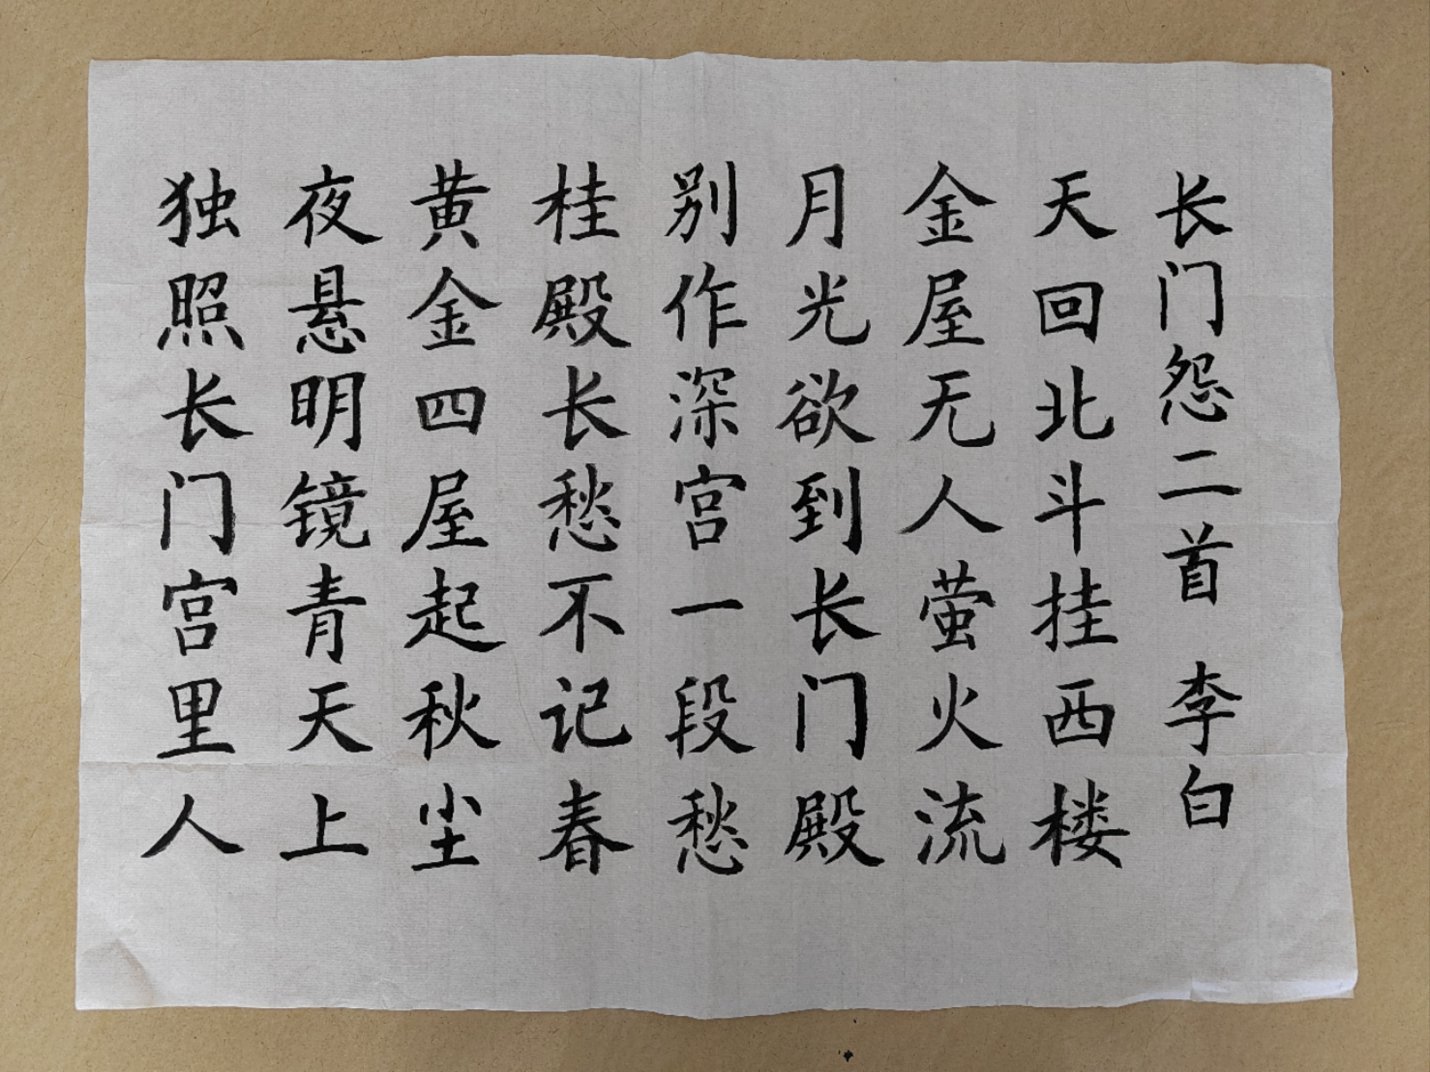 长门怨二首 李白
天回北斗挂西楼
金屋无人萤火流
月光欲到长门殿
别作深宫一段愁
桂殿长愁不记春
黄金四屋起秋尘
夜悬明镜青天上
独照长门宫里人